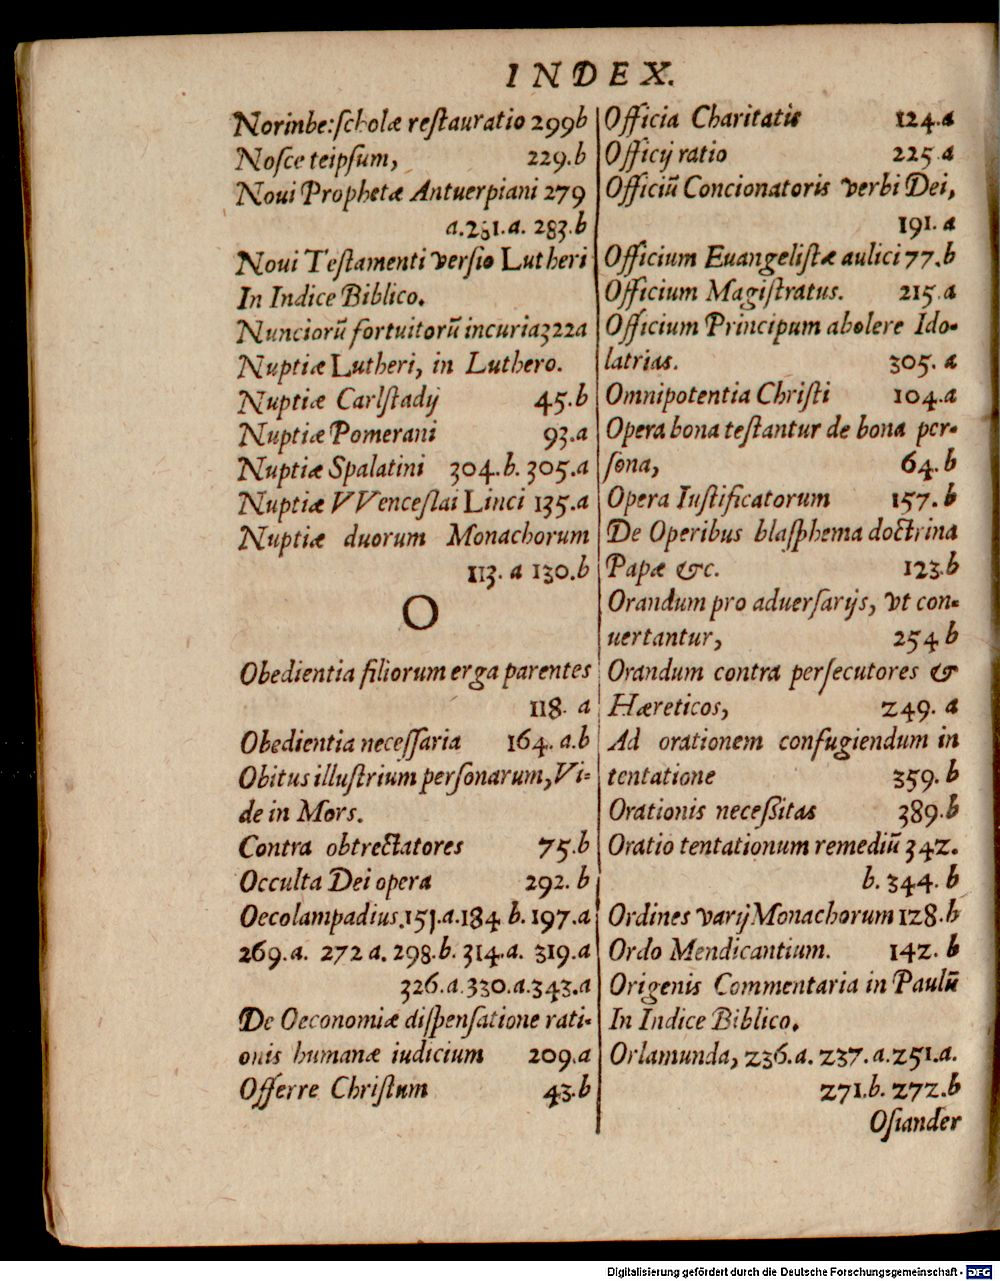 INDEX.
Norinbe: scholæ restauratio 299b
Nosce teipsum, 229.b
Noui Prophetæ Antuerpiani 279
a.281.a. 283.b
Noui Testamenti versio Lutheri
In Indice Biblico.
Nunciorū fortuitorū incuria 322a
Nuptiæ Lutheri, in Luthero.
Nuptiæ Carlstadij 45.b
Nuptiæ Pomerani 93.a
Nuptiæ Spalatini 304.b. 305.a
Nuptiæ VVenceslai Linci 135.a
Nuptiæ duorum Monachorum
113. a 130.b
O
Obedientia filiorum erga parentes
118. a
Obedientia necessaria 164. a.b
Obitus illustrium personarum, Vi-
de in Mors.
Contra obtrectatores 75.b
Occulta Dei opera 292. b
Oecolampadius. 151.a. 184 b. 197.a
269.a. 272 a. 298.b. 314.a. 319.a
326.a. 330.a. 343.a
De Oeconomiæ dispensatione rati-
onis humanæ iudicium 209.a
Offerre Christum 43.b
Officia Charitatis 124.a
Officij ratio 225 a
Officiū Concionatoris verbi Dei,
191. a
Officium Euangelistæ aulici 77.b
Officium Magistratus. 215.a
Officium Principum abolere Ido-
latrias. 305. a
Omnipotentia Christi 104.a
Opera bona testantur de bona per-
sona, 64. b
Opera Iustificatorum 157. b
De Operibus blasphema doctrina
Papæ &c. 123.b
Orandum pro aduersarijs, vt con-
uertantur, 254 b
Orandum contra persecutores &
Hæreticos, 249. a
Ad orationem confugiendum in
tentatione 359. b
Orationis necessitas 389.b
Oratio tentationum remediū 342.
b. 344. b
Ordines varij Monachorum 128.b
Ordo Mendicantium. 142. b
Origenis Commentaria in Paulū
In Indice Biblico.
Orlamunda, 236.a. 237. a. 251.a.
271.b. 272.b
Osiander
Digitalisierung gefördert durch die Deutsche Forschungsgemeinschaft - DFG